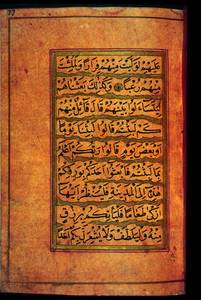 عليهم لوليت منهم فرارا ولملئت
منهم رعبا وكذلك بعثناهم
ليتساءلوا بينهم قال قائل منهم
كم لبثتم قالوا لبثنا يوما
او بعض يوم قالوا ربكم اعلم
بما لبثتم فابعثوا احدكم بورقكم
هذه الى المدينة فلينظر ايها
ازكى طعاما فليأتكم برزق
منه وليتلطف ولا يشعرن بكم احدا